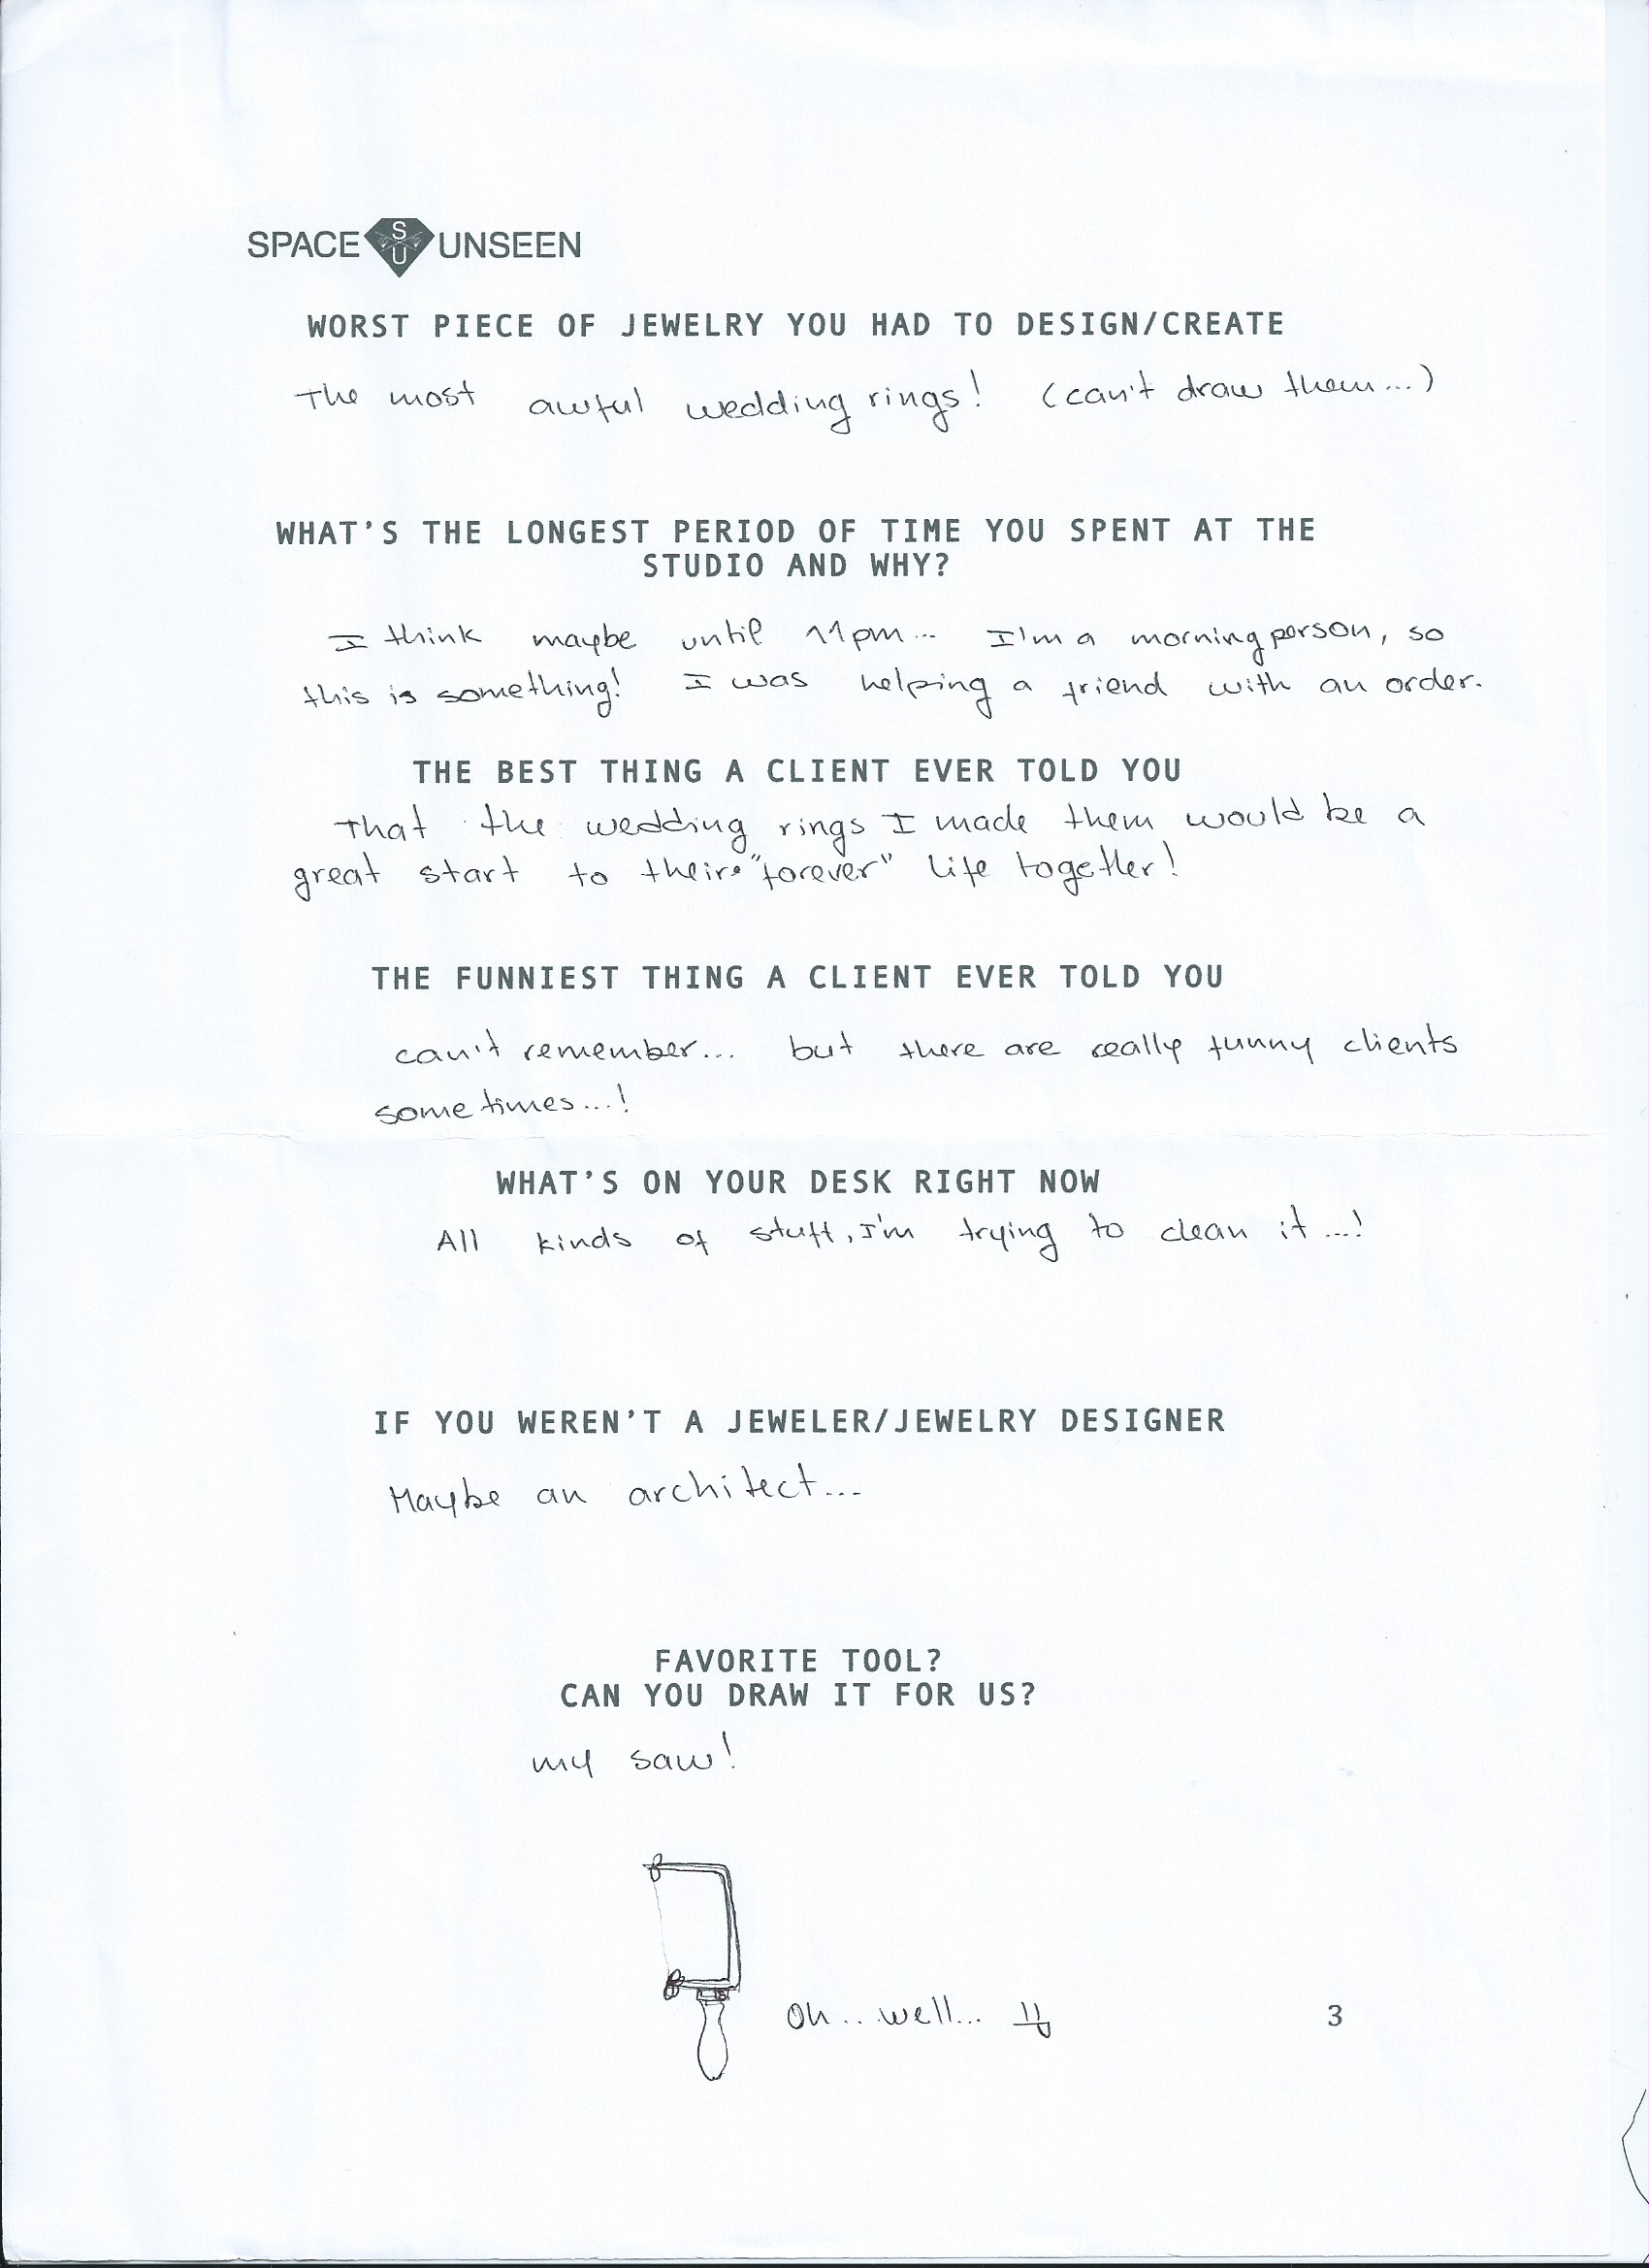 SPACE SU UNSEEN
WORST PIECE OF JEWELRY YOU HAD TO DESIGN/CREATE
The most awful wedding rings! (can't draw them...)
WHAT'S THE LONGEST PERIOD OF TIME YOU SPENT AT THE
STUDIO AND WHY?
I think maybe until 11pm... I'm a morning person, so
this is something! I was helping a friend with an order.
THE BEST THING A CLIENT EVER TOLD YOU
That the wedding rings I made them would be a
great start to their "forever" life together!
THE FUNNIEST THING A CLIENT EVER TOLD YOU
can't remember... but there are really funny clients
sometimes...!
WHAT'S ON YOUR DESK RIGHT NOW
All kinds of stuff, I'm trying to clean it...!
IF YOU WEREN'T A JEWELER/JEWELRY DESIGNER
Maybe an architect...
FAVORITE TOOL?
CAN YOU DRAW IT FOR US?
my saw!
Oh... well...
3